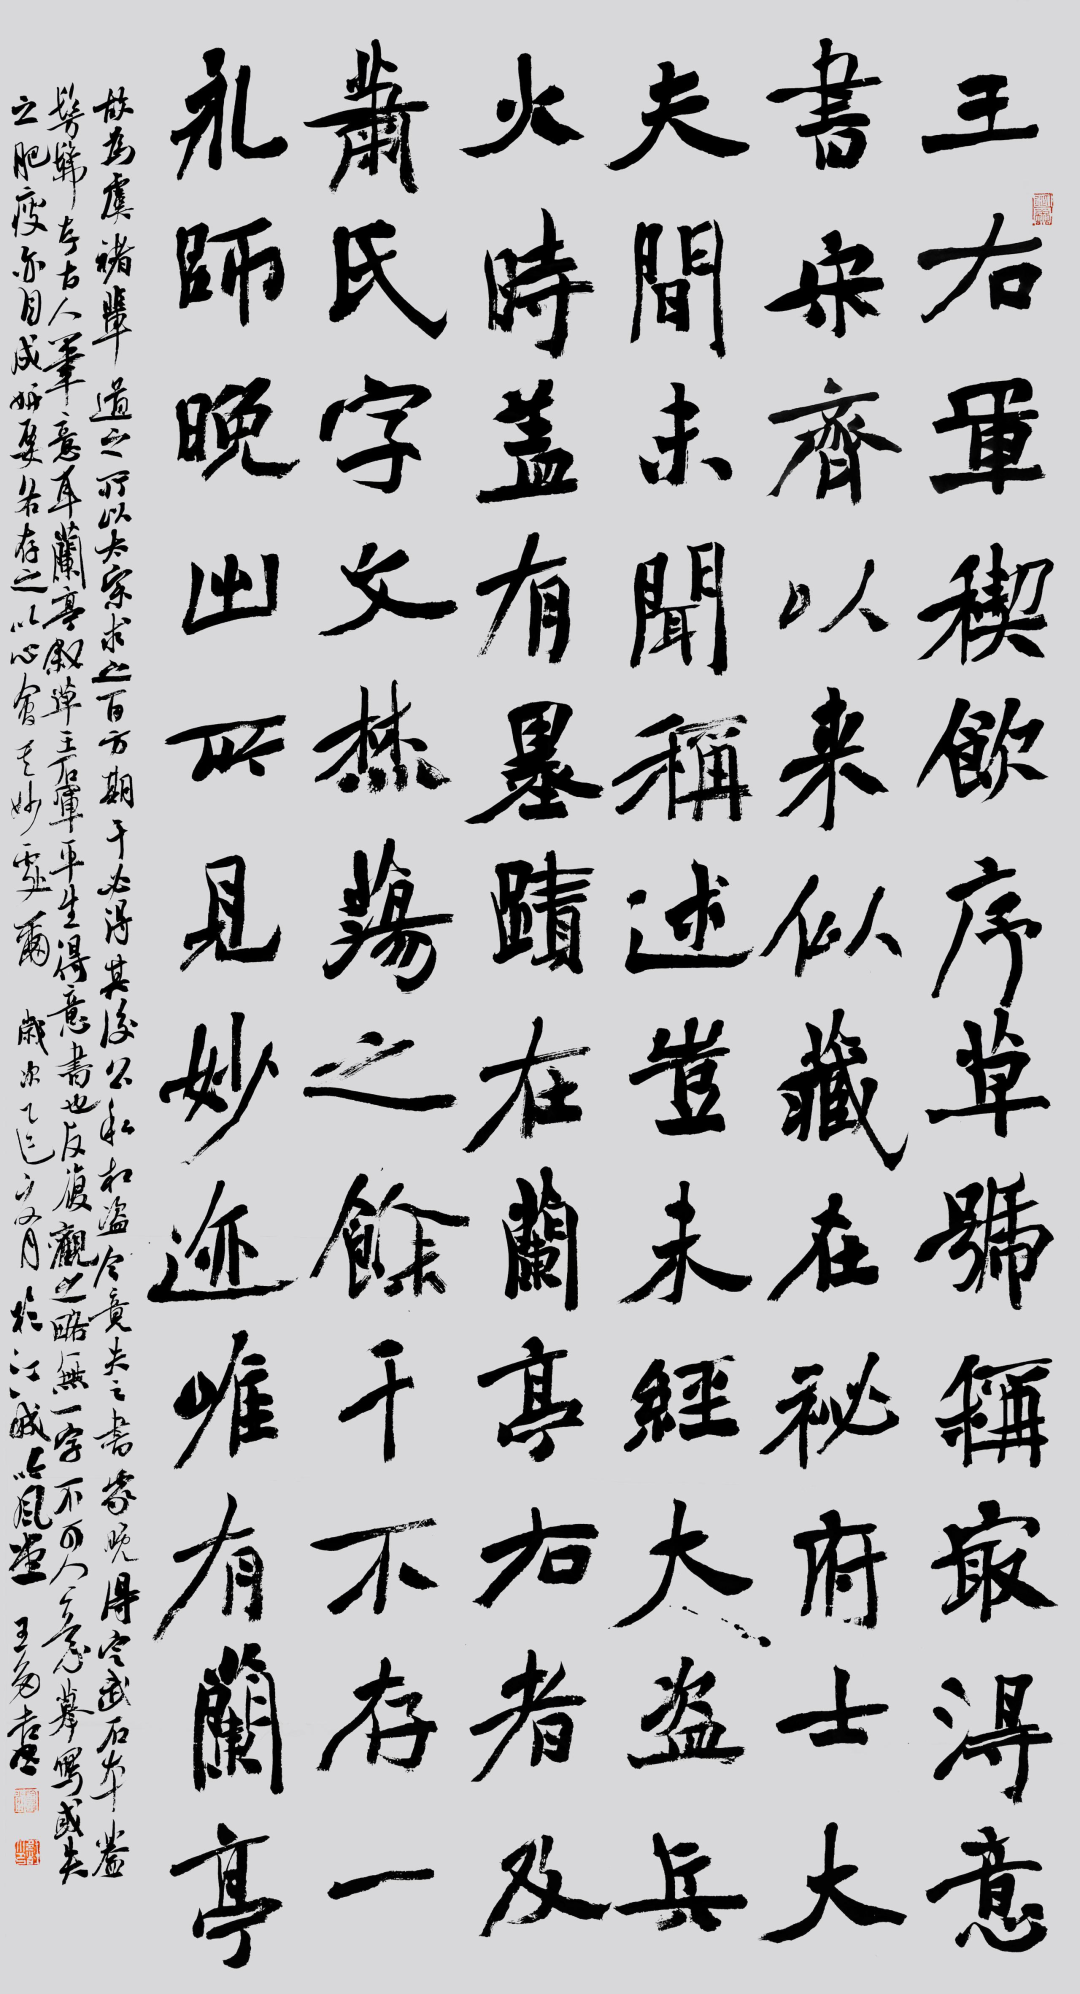 王右軍禊飲序草號稱最得意
書宋齊以来似藏在秘府士大
夫間未聞稱述豈未經大盜兵
火時蓋有墨蹟在蘭亭右者及
蕭氏字文焚蕩之餘千不存一
永師晚出所見妙迹唯有蘭亭
故為虞褚輩道之所以太宗求之百方期于必得其後公私相盜今竟失之書家晚得定武石本蓋
髣髴存古人筆意耳蘭亭叙草王右軍平生得意書也反復觀之略無一字不可人意摹寫或失
之肥瘦亦自成妍要各存之以心會其妙處爾 歲次乙巳夏月於江城吟風堂 王